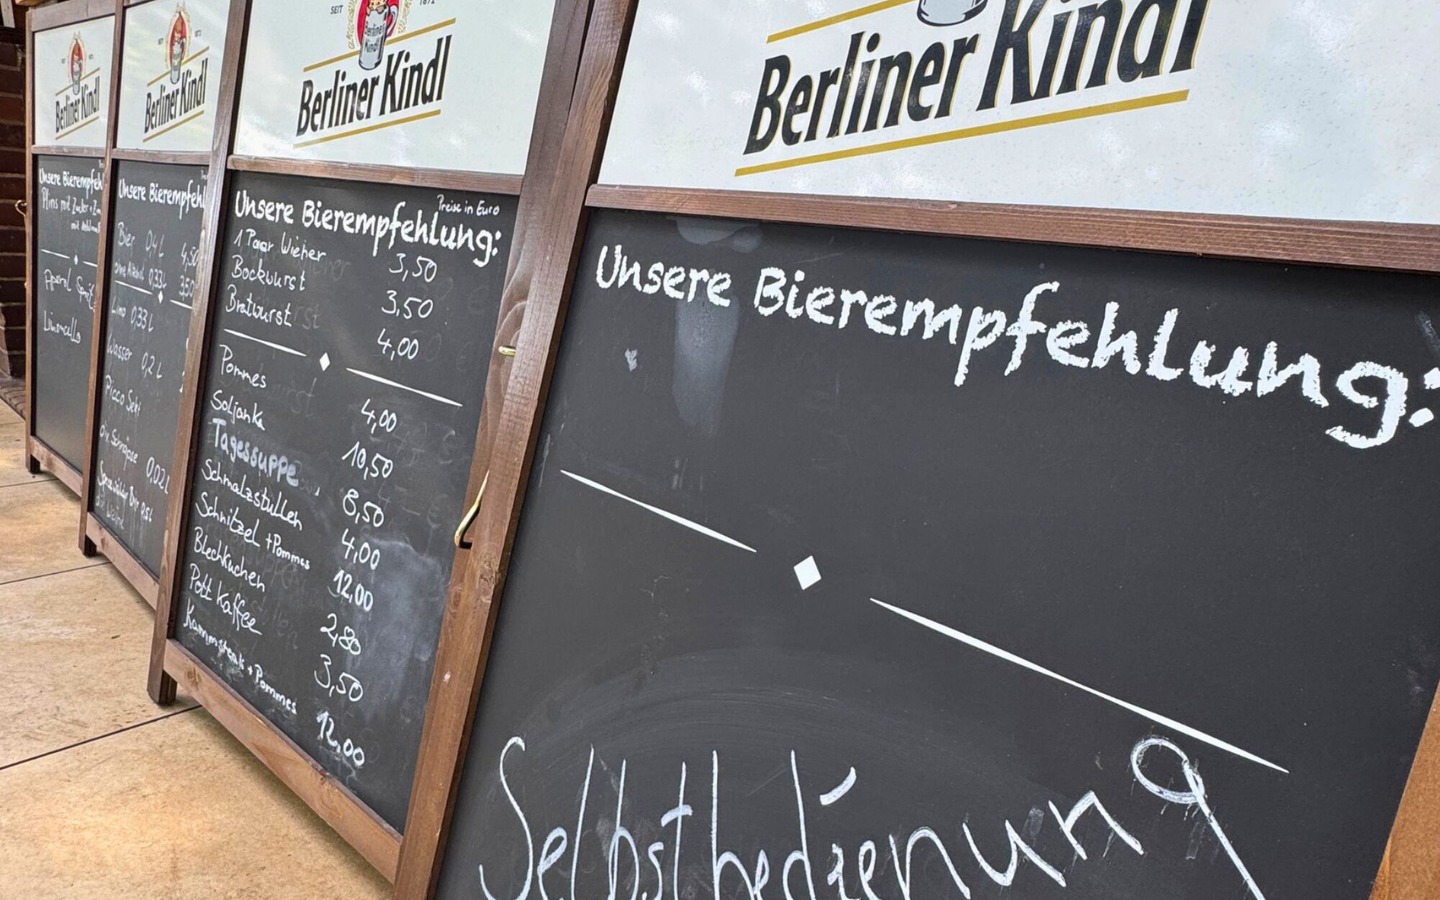 Berliner Kindl
Berliner Kindl
SEIT 1872
Berliner Kindl
Berliner Kindl
Berliner Kindl
Unsere Bierempfeh
Unsere Bierempfehl
Bier 0,4 L 4,50
0,33L 3,50
Limo 0,33 L
Wasser 0,2 L
Picco Sekt
0,02L
Limoncello
Preise in Euro
Unsere Bierempfehlung:
1 Paar Wiener 3,50
Bockwurst 3,50
Bratwurst 4,00
Pommes 4,00
Soljanka 10,50
Tagessuppe 8,50
Schmalzstullen 4,00
Schnitzel + Pommes 12,00
Blechkuchen 2,80
Pott Kaffee 3,50
Kammsteak + Pommes 12,00
Unsere Bierempfehlung:
Selbstbedienung